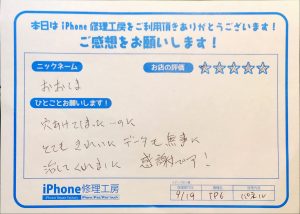 本日は iPhone 修理工房をご利用頂きありがとうございます!
ご感想をお願いします!
ニックネーム
お店の評価 ☆☆☆☆☆
おおしま
ひとことお願いします!
穴あけてしまった
とてもきれいに データも無事に
治してくれました 感謝です!
iPhone修理工房
iPhone Repair Factory iPhone/iPad/iPod touch
9/19